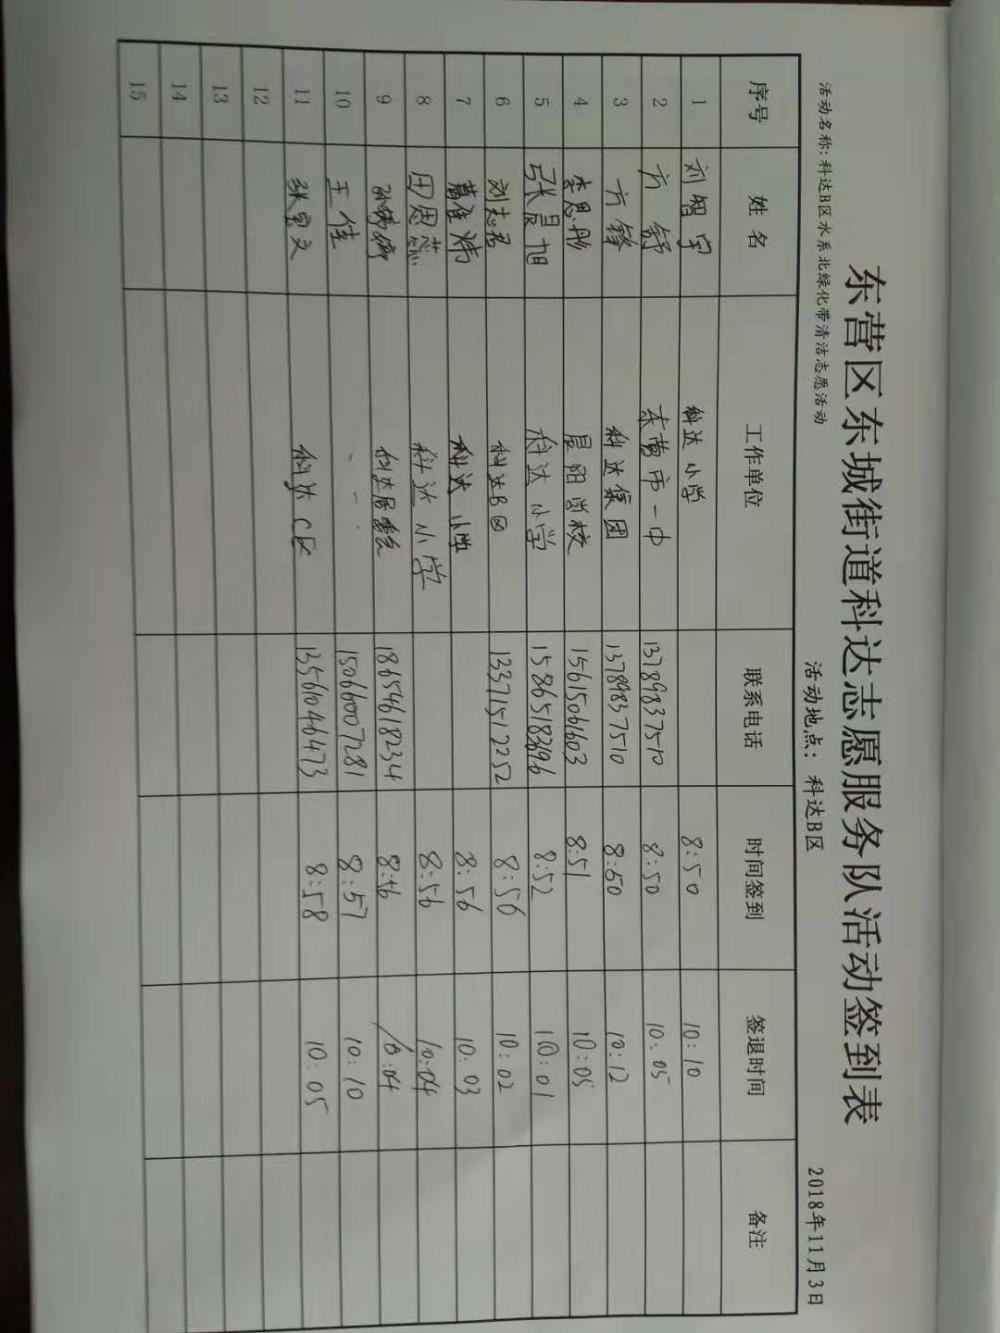 东营区东城街道科达志愿服务队活动签到表
活动名称：科达B区水系北绿化带清洁志愿活动 活动地点：科达B区 2018年11月3日
序号 姓名 工作单位 联系电话 时间签到 签退时间 备注
1 刘智宇 科达小学 8:50 10:10
2 方舒 东营市一中 13789837510 8:50 10:05
3 方锋 科达集团 13789837510 8:50 10:12
4 李思彤 晨阳学校 15615061603 8:51 10:05
5 张昊旭 科达小学 15865183696 8:52 10:01
6 刘志君 科达B区 13371512252 8:56 10:02
7 科达小学 8:56 10:03
8 田恩蕊 科达小学 8:56 10:04
9 科达居委会 18654618234 8:56 10:04
10 王佳 15066007281 8:57 10:10
11 科达C区 13561046473 8:58 10:05
12
13
14
15